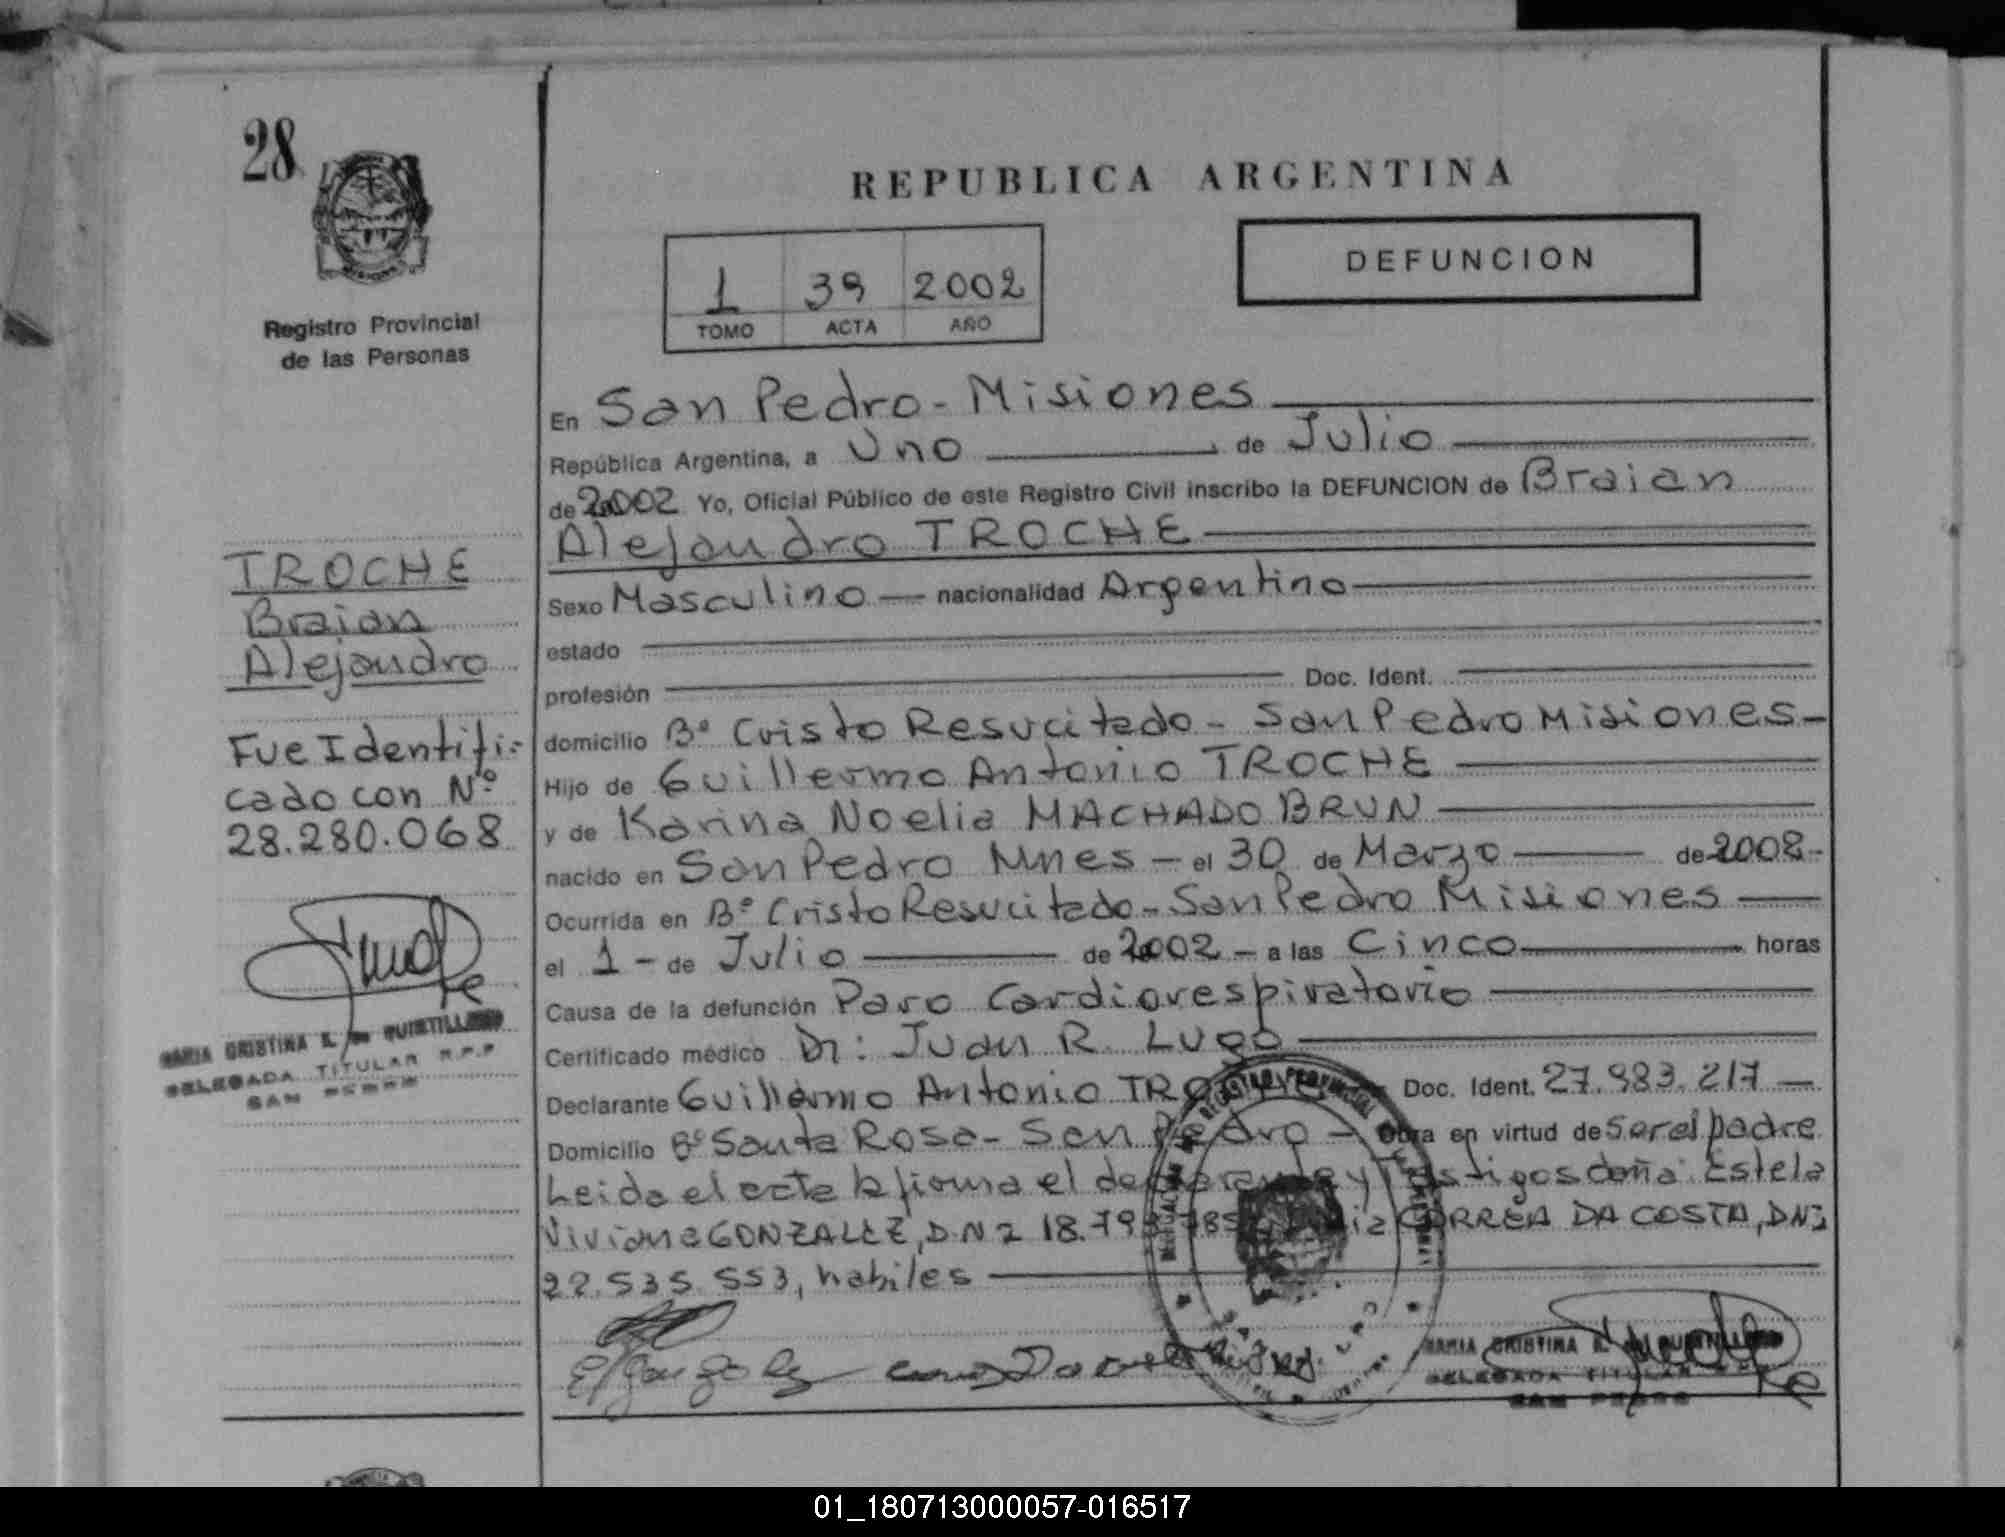 28
REPUBLICA ARGENTINA
1 39 2002
TOMO ACTA AÑO
DEFUNCION
Registro Provincial
de las Personas
TROCHE
Braian
Alejandro
Fue Identifi-
cado con Nº
28.280.068
MARIA CRISTINA
DELEGADA TITULAR R.P.P
SAN PEDRO
En San Pedro - Misiones
República Argentina, a Uno de Julio
de 2002 Yo, Oficial Público de este Registro Civil inscribo la DEFUNCION de Braian
Alejandro TROCHE
Sexo Masculino — nacionalidad Argentino
estado
profesión Doc. Ident.
domicilio Bº Cristo Resucitado - San Pedro Misiones -
Hijo de Guillermo Antonio TROCHE
y de Karina Noelia MACHADO BRUN
nacido en San Pedro Mnes - el 30 de Marzo de 2002 -
Ocurrida en Bº Cristo Resucitado - San Pedro Misiones
el 1 - de Julio de 2002 - a las Cinco horas
Causa de la defunción Paro Cardiorespiratorio
Certificado médico Dr: Juan R. Lugo
Declarante Guillermo Antonio TROCHE Doc. Ident. 27.983.217 —
Domicilio Bº Santa Rosa - San Pedro — Obra en virtud de Ser el padre
Leida el acta la firma el declarante y Testigos doña: Estela
Viviana GONZALEZ, D.N.I 18.79 CORREA DA COSTA, DNI
22.535.553, habiles
MARIA CRISTINA
DELEGADA TITULAR
SAN PEDRO
01_180713000057-016517